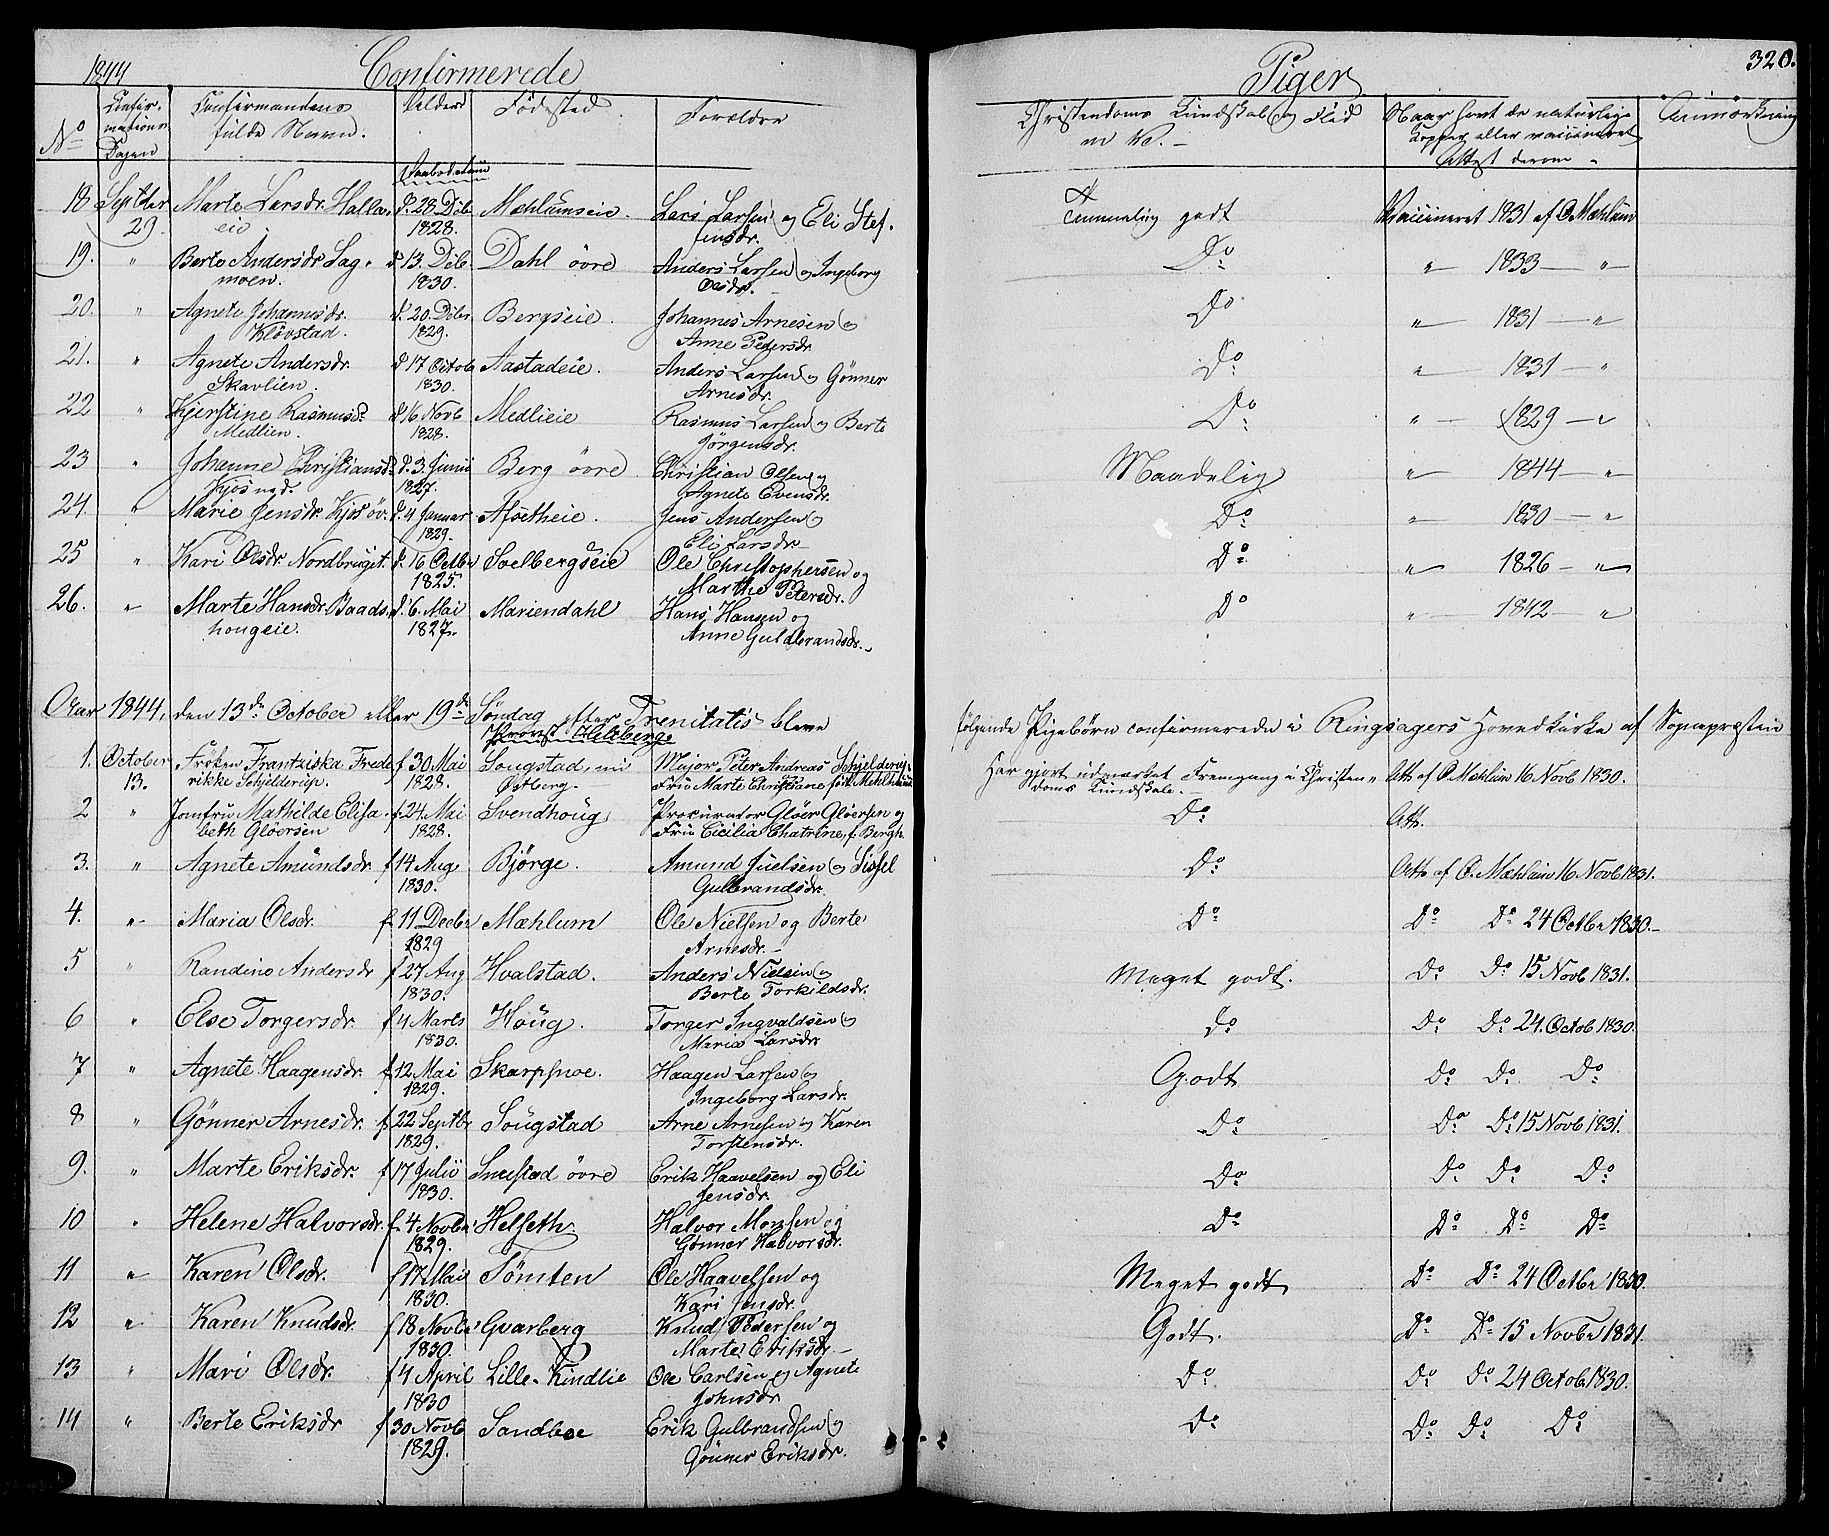 1844 Confirmerede Piger 320.
No Confirmations Dagen Confirmandens fulde Navn. Alder Fødested. Forældre Christendoms Kundskab og Flid m. V. Naar havt de naturlige Kopper eller vaccineret Attest derom Anmærkning
Daabsdatum
18 Septber 29. Marte Larsdr. Hallm- d. 28 Dcb. Mæhlumseie. Lars Larsen og Eli Stef- Temmelig godt Vaccineret 1831 af O. Mæhlum
eie 1828. fensdr.
19. " Berte Andersdr. Lag- d. 13. Dcb. Dahl øvre Anders Larsen og Ingeborg Do " 1833 "
moen. 1830. Olsdr.
20. " Agnete Johannesdr. d. 20. Dcbr Bergseie. Johannes Arnesen og Do " 1831 "
Kløvstad. 1829. Anne Pedersdr.
21. " Agnete Andersdr. d. 17 Octob Aastadeie. Anders Larsen og Gønner Do " 1831 "
Skavlien. 1830. Arnesdr.
22 " Kjerstine Rasmusd. d. 16 Novb Medlieie Rasmus Larsen og Berte Do " 1829 "
Medlien. 1828. Jørgensdr.
23 " Johanne Christiansd. d. 3. Junii Berg øvre Christian Olsen og Maadelig " 1844 "
Kjos ned. 1827. Agnete Evensdr.
24. " Marie Jensdr. Kjos øv. d. 4 Januar Afsetheie. Jens Andersen og Do " 1830 "
1829. Eli Larsdr.
25 " Kari Olsdr. Nordbruget. d. 16 Octbr Soelbergseie Ole Christophersen og Do " 1826 "
1825. Marthe Petersdr.
26. " Marte Hansdr. Baads- d. 6. Mai Mariendahl Hans Hansen og Do " 1842 "
hougeie. 1827. Anne Guldbrandsdr.
Aar 1844, den 13de October eller 19de Søndag efter Trenitatis bleve følgende Pigebørn confirmerede i Ringsagers Hovedkirke af Sognepræsten
Provst
1. October 13. Frøken Frantziska Frede f 30 Mai Sougstad, nu Major Peter Andreas Schjelderup Har gjort udmærket Fremgang i Christen- Att. af O. Mæhlum 16 Novb 1830.
rikke Schjelderup. 1828. Østberg. Fru Marte Christiane doms Kundskab.
2 " Jomfru Mathilde Elisa- f. 24 Mai Svendhoug Procurator Gløer Gløersen og Do Att.
beth Gløersen 1828. Frue Cicilia Chatrine, f. Bergh.
3. " Agnete Amundsdr. f 14 Aug Bjørge. Amund Juelsen og Sissel Do Att. af O. Mæhlum 16 Novb 1831.
1830. Gulbrandsdr.
4. " Maria Olsdr. f 11 Decbr Mæhlum Ole Nielsen og Berte Do Do Do 24 Octbr 1830.
1829 Arnesdr.
5 " Randine Andersdr f 27 Aug Hvalstad. Anders Nielsen og Meget godt. Do Do 15 Novb 1831.
1830. Berte Torkildsdr.
6 " Else Torgersdr. f 4 Marts Houg. Torger Ingvaldsen og Do Do Do 24. Octob 1830.
1830. Maria Larsdr
7 " Agnete Haagensdr. f 12 Mai Skarpsnoe. Haagen Larsen og Godt Do Do Do
1829. Ingeborg Larsdr.
8 " Gønner Arnesdr. f 22 Septbr Sougstad Arne Arnesen og Karen Do Do Do 15 Novb 1831.
1829. Torstensdr.
9. " Marte Eriksdr. f 17 Julii Snestad øvre Erik Haavelsen og Eli Do Do Do Do
1830. Jensdr.
10 " Helene Halvorsdr. f. 4 Novbr Helseth Halvor Monsen og Do Do Do Do
1829. Gønner Halvorsdr.
11 " Karen Olsdr. f 17 Mai Tømten Ole Haavelsen og Meget godt Do Do 24 Octbr 1830.
1830. Kari Jensdr.
12 " Karen Knudsdr. f 18 Novbr Gvarberg Knud Pedersen og Godt. Do Do 15 Novbr 1831.
1830. Marte Eriksdr.
13 " Mari Olsdr. f 4 April Lille-Kindlie Ole Carlsen og Agnete Do Do Do 24 Octob 1830.
1830 Johnsdr
14 " Berte Eriksdr f 30 Novb Sandboe Erik Gulbrandsen og Do Do Do Do
1829. Gønner Eriksdr.